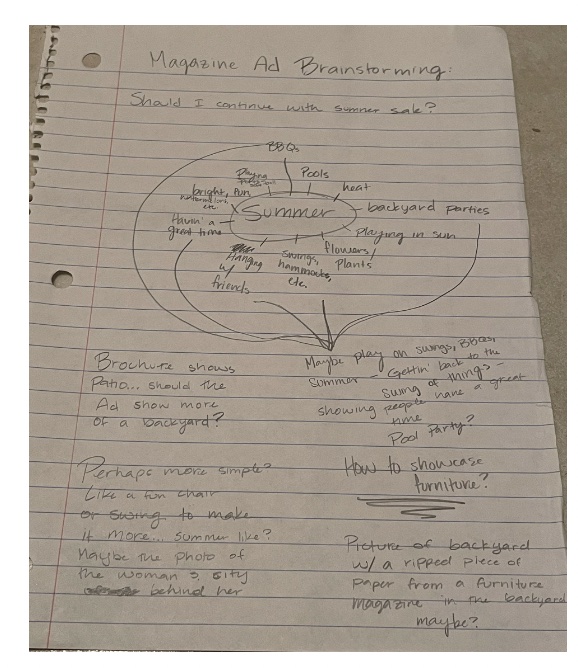 Magazine Ad Brainstorming:
Should I continue with summer sale?
BBQs
Playing
Pools
bright, fun
heat
watermelon,
etc.
Summer
backyard parties
Havin' a
great time
Playing in sun
Hanging
w/
friends
swings,
hammocks,
etc.
flowers/
Plants
Brochure shows
Patio... should the
Ad show more
of a backyard?
Maybe play on swings, BBQs,
Summer - Gettin' back to the
swing of things -
showing people have a great
time
Pool Party?
Perhaps more simple?
Like a fun chair
or swing to make
it more... summer like?
Maybe the photo of
the woman & city
behind her
How to showcase
furniture?
Picture of backyard
w/ a ripped piece of
paper from a furniture
magazine in the backyard
maybe?